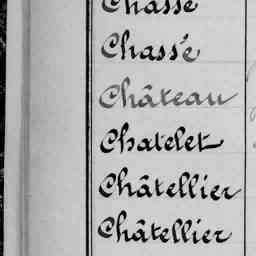 Chasse
Chassé
Château
Chatelet
Châtellier
Châtellier